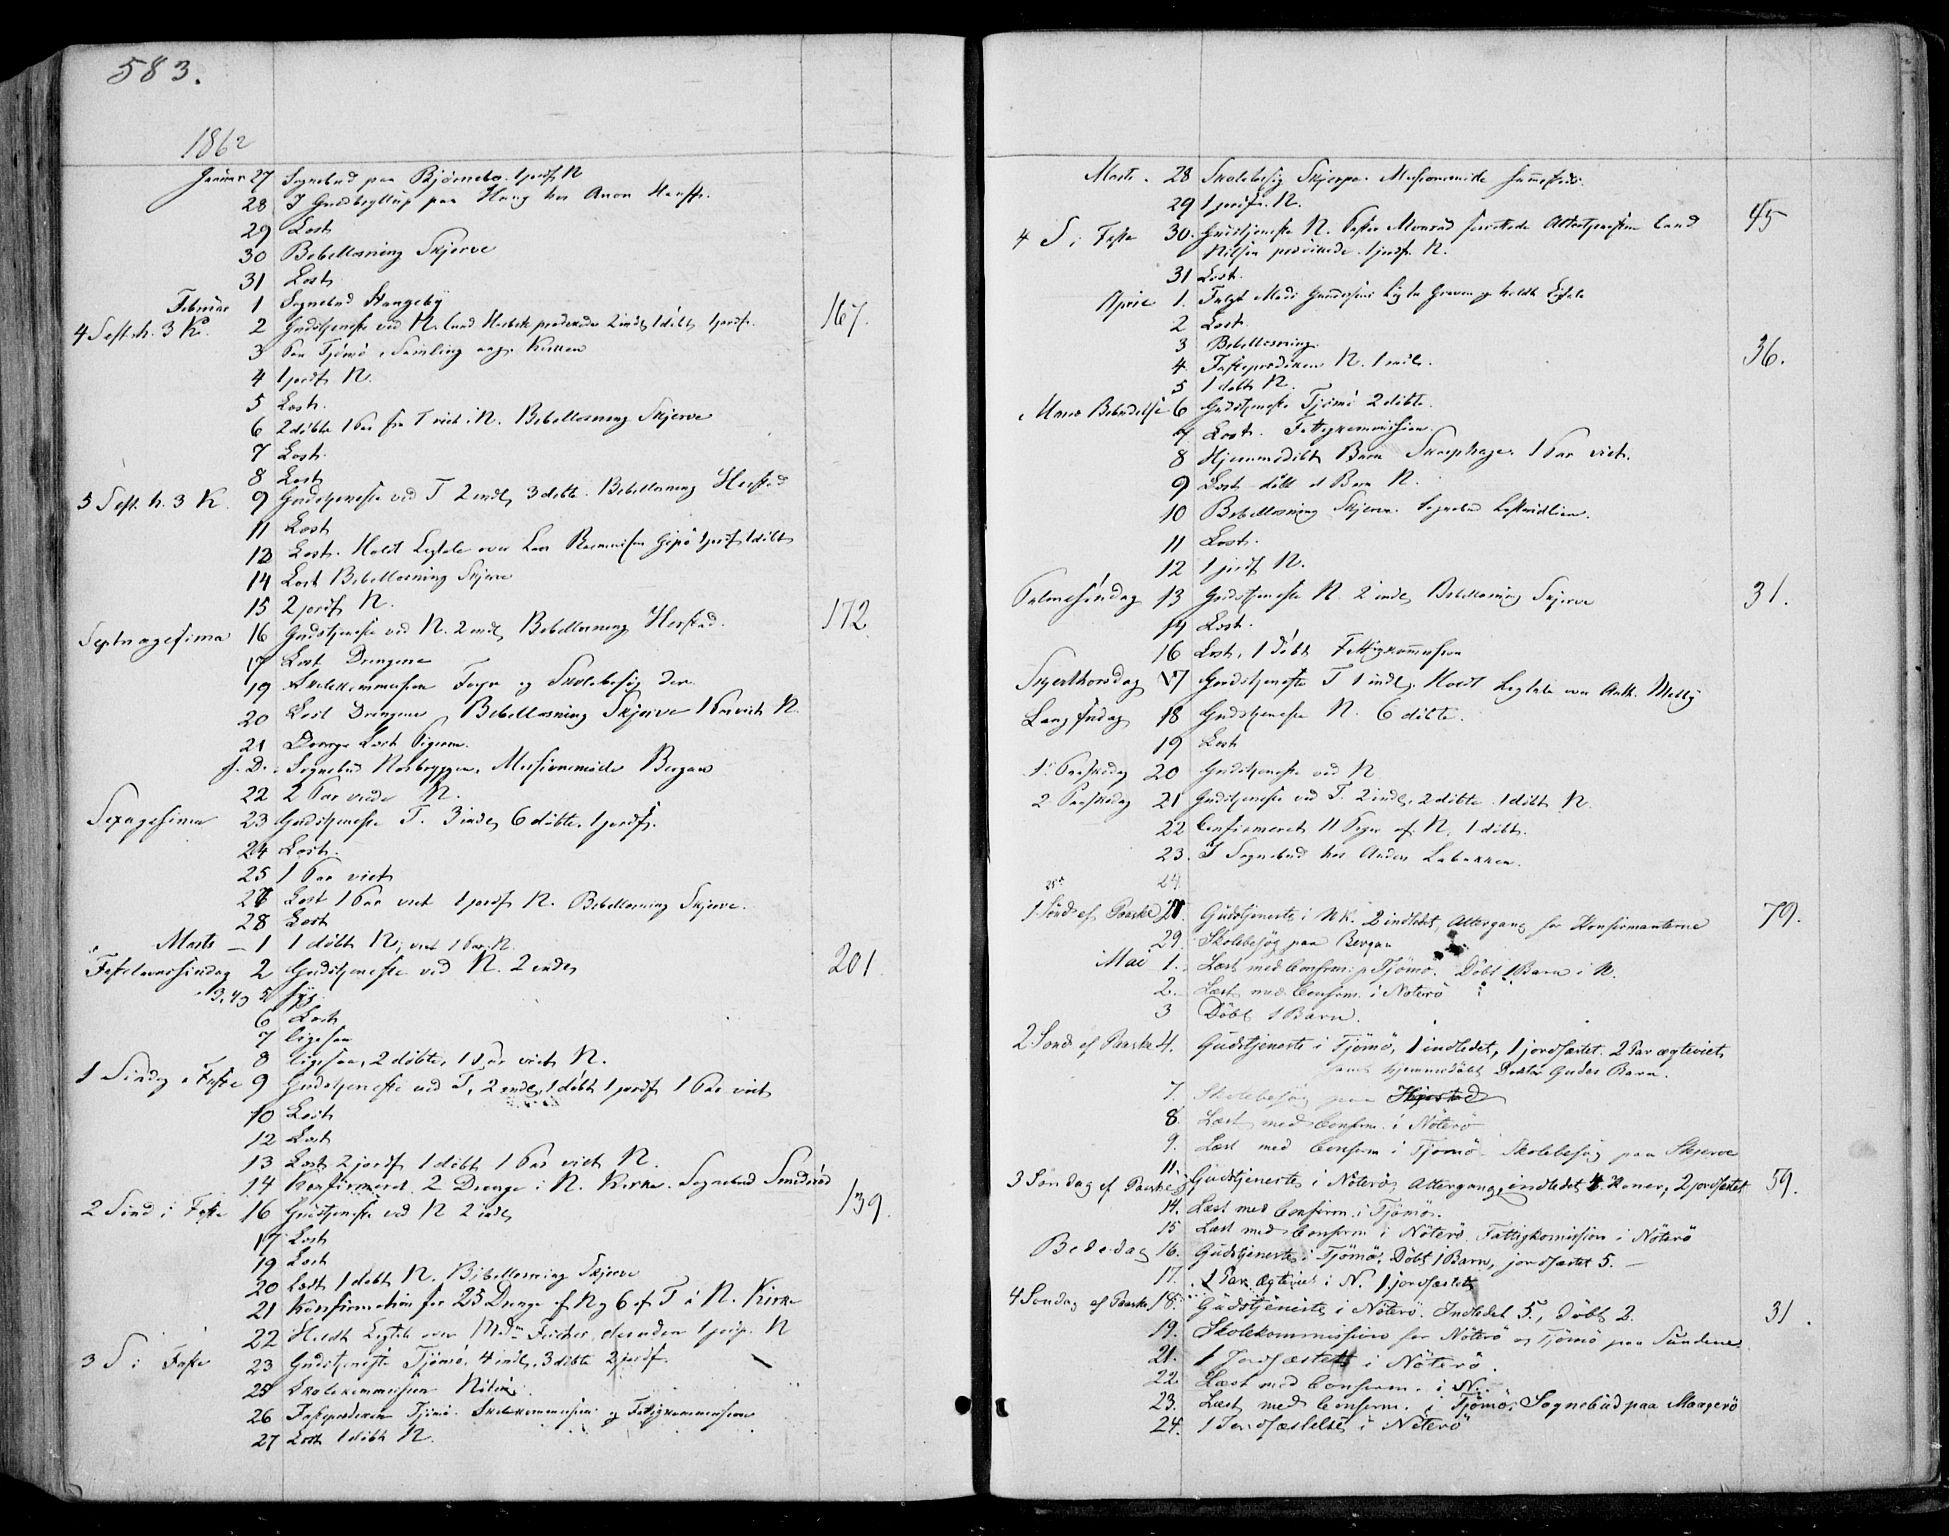 583.
1862
Januar 27 Sognebud paa Bjørnebo. 1 jordf. N
28 I Guldbryllup paa Haug hos Aron
29 Læst
30 Bibellæsning Skjerve
31 Læst
Februar 1 Sognebud Stangeby
4 Søst. h. 3 K. 2 Gudstjeneste ved N. Cand prædikede 2 indl, 1 døbt, 1 jordf. 167.
3 Paa Tjømø, Samling ang. Kirken
4 1 jordf. N.
5 Læst.
6 2 døbte 1 Par fra T viet i N. Bibellæsning Skjerve
7 Læst.
8 Læst
5 Søst. h. 3 K. 9 Gudstjeneste ved T 2 indl, 3 døbte. Bibellæsning Herstad
11 Læst
12 Læst. Holdt Ligtale over Lars Gipø 1 jordf. 1 døbt
14 Læst Bibellæsning Skjerve
15 2 jordf. N.
Septuagesima 16 Gudstjeneste ved N. 2 indl, Bibellæsning Herstad. 172
17 Læst Drengene
19 Skolekommission og Skolebesøg der
20 Læst Drengene Bibellæsning Skjerve 1 Par viet N.
21 Læst Pigerne.
s. D. Sognebud Missionsmøde Bergan
22 2 Par viede N.
Sexagesima 23 Gudstjeneste T. 3 indl, 6 døbte, 1 jordf.
24 Læst.
25 1 Par viet
27 Læst 1 Par viet 1 jordf. N. Bibellæsning Skjerve.
28 Læst
Marts — 1 1 døbt N, viet 1 Par N.
Fastelavnssøndag 2 Gudstjeneste ved N. 2 indl, 201.
3, 4, 5 syg
6 Læst
7 ligesaa
8 ligesaa, 2 døbte, 1 Par viet N.
1 Søndag i Faste 9 Gudstjeneste ved T, 2 indl, 1 døbt 1 jordf. 1 Par viet
10 Læst
12 Læst
13 Læst, 2 jordf. 1 døbt 1 Par viet N.
14 Konfirmeret 2 Drenge i N. Kirke. Sognebud Smidsrød
2 Sønd i Faste 16 Gudstjeneste ved N 2 indl, 139.
17 Læst
19 Læst
20 Læst 1 døbt N. Bibellæsning Skjerve
21 Konfirmation for 25 Drenge af N og 6 af T i N. Kirke
22 Holdt Ligtale over Mdm Fischer, desuden 1 jordf. N
3 S i Faste 23 Gudstjeneste Tjømø, 4 indl, 3 døbte 2 jordf.
25 Skolekommission Nøterø.
26 Fasteprædiken Tjømø. Skolekommission og Fattigkommission
27 Læst 1 døbt N.
Marts. 28 Skolebesøg Skjerpe. Missionsmøde
29 1 jordf. N.
4 S i Faste 30. Gudstjeneste N. Pastor Monrad forrettede Altertjenesten Cand 45
Nilsen prædikede. 1 jordf. N.
31 Læst.
April 1. Fulgt Mads Gundersens Lig til Graven og holdt Ligtale
2 Læst.
3 Bibellæsning.
4 Fasteprædiken N. 1 indl. 36.
5 1 døbt N.
Mariæ Bebudelse 6 Gudstjeneste Tjømø 2 døbte.
7 Læst. Fattigkommission.
8 Hjemmedøbt Barn 1 Par viet.
9 Læst døbt et Barn N.
10 Bibellæsning Skjerve. Sognebud
11 Læst.
12 1 jordf. N.
Palmesøndag 13 Gudstjeneste N. 2 indl, Bibellæsning Skjerve 31.
14 Læst.
16 Læst, 1 døbt Fattigkommission
Skjærthorsdag 17 Gudstjeneste T 1 indl. Holdt Ligtale over Anth. Melbÿ
Langfredag 18 Gudstjeneste N. 6 døbte.
19 Læst
1 Paaskedag 20 Gudstjeneste ved N
2 Paaskedag 21 Gudstjeneste ved T. 2 indl. 2 døbte. 1 døbt N.
22 Confirmeret 11 Piger af N, 1 døbt.
23. I Sognebud hos Anders Labakken.
24
1 Sønd ef. Paaske 27. Gudstjeneste i N K. 2 indledet, Altergang for Konfirmanterne 79.
29. Skolebesøg paa Bergan
Mai 1. Læst med Confirm: p Tjømø. Døbt 1 Barn i N.
2. Læst med Confirm. i Nøterø
3 Døbt 1 Barn.
2 Sønd ef Paaske 4. Gudstjeneste i Tjømø, 1 indledet, 1 jordfæstet. 2 Par ægteviet,
samt hjemmedøbt Doktor Gudes Barn.
7. Skolebesøg paa Hjerstad
8. Læst med Confirm. i Nøterø
9. Læst med Confirm i Tjømø. Skolebesøg paa Skjerve
3 Søndag ef Paaske 11. Gudstjeneste i Nøterø, Altergang, indledet 4 Koner, 2 jordfæstet 59.
14. Læst med Confirm. i Tjømø.
15 Læst med Confirm i Nøterø. Fattigkomission i Nøterø
Bededag 16. Gudstjeneste i Tjømø. Døbt 1 Barn, jordfæstet 5. —
17. 1 Par ægteviet i N. 1 jordfæstet,
4 Søndag ef Paaske 18. Gudstjeneste i Nøterø. Indledet 5, døbt 2. 31.
19. Skolekommission for Nøterø og Tjømø paa Sundene
21. 1 Jordfæstet i Nøterø.
22. Læst med Confirm. i N.
23. Læst med Confirm. i Tjømø. Sognebud paa Maagerø
24. 1 Jordfæstelse i Nøterø